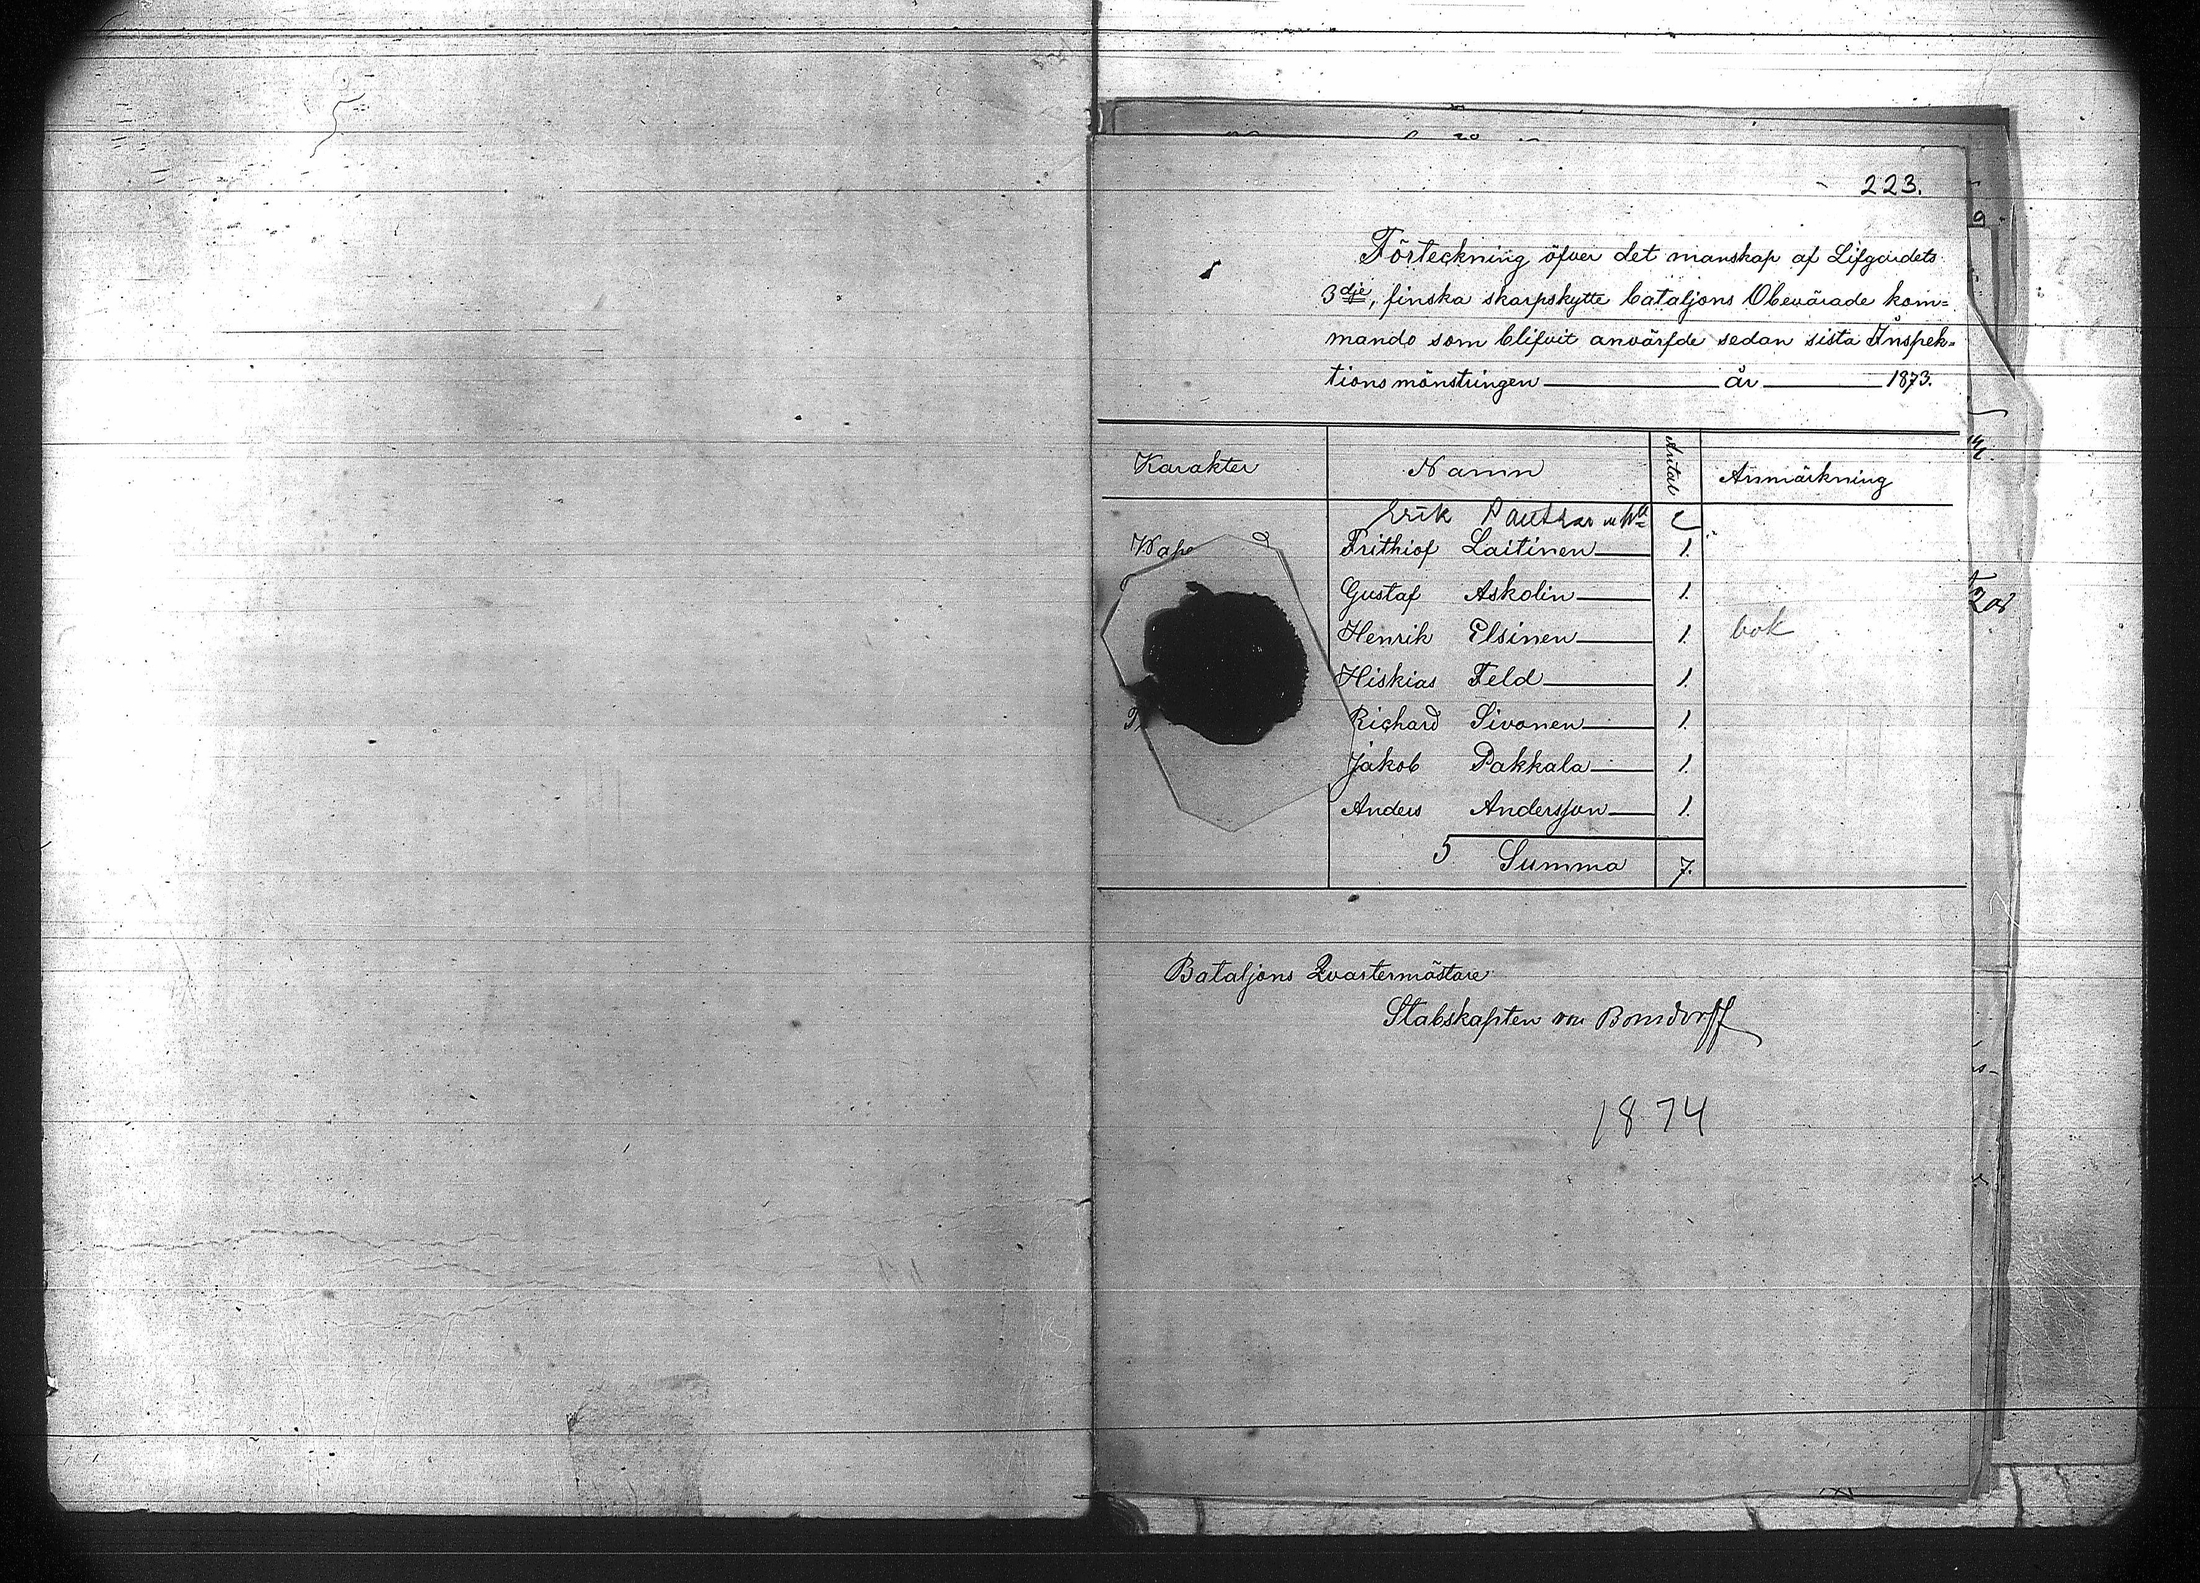 223.
Förteckning öfver det manskap af Lifgardets
3dje, finska skarpskytte bataljons Obevärade kom=
mando som blifvit anvärfde sedan sista Inspek=
tionsmönstringen år 1873.
Karakter Namn Antal Anmärkning
Erik
Frithiof Laitinen 1.
Gustaf Askolin 1.
Henrik Elsinen 1. bok
Hiskias Feld 1.
Richard Sivonen 1.
Jakob Pakkala 1.
Anders Andersson 1.
5 Summa 7.
Bataljons Qvartermästare
Stabskapten von Bonsdorff
1874